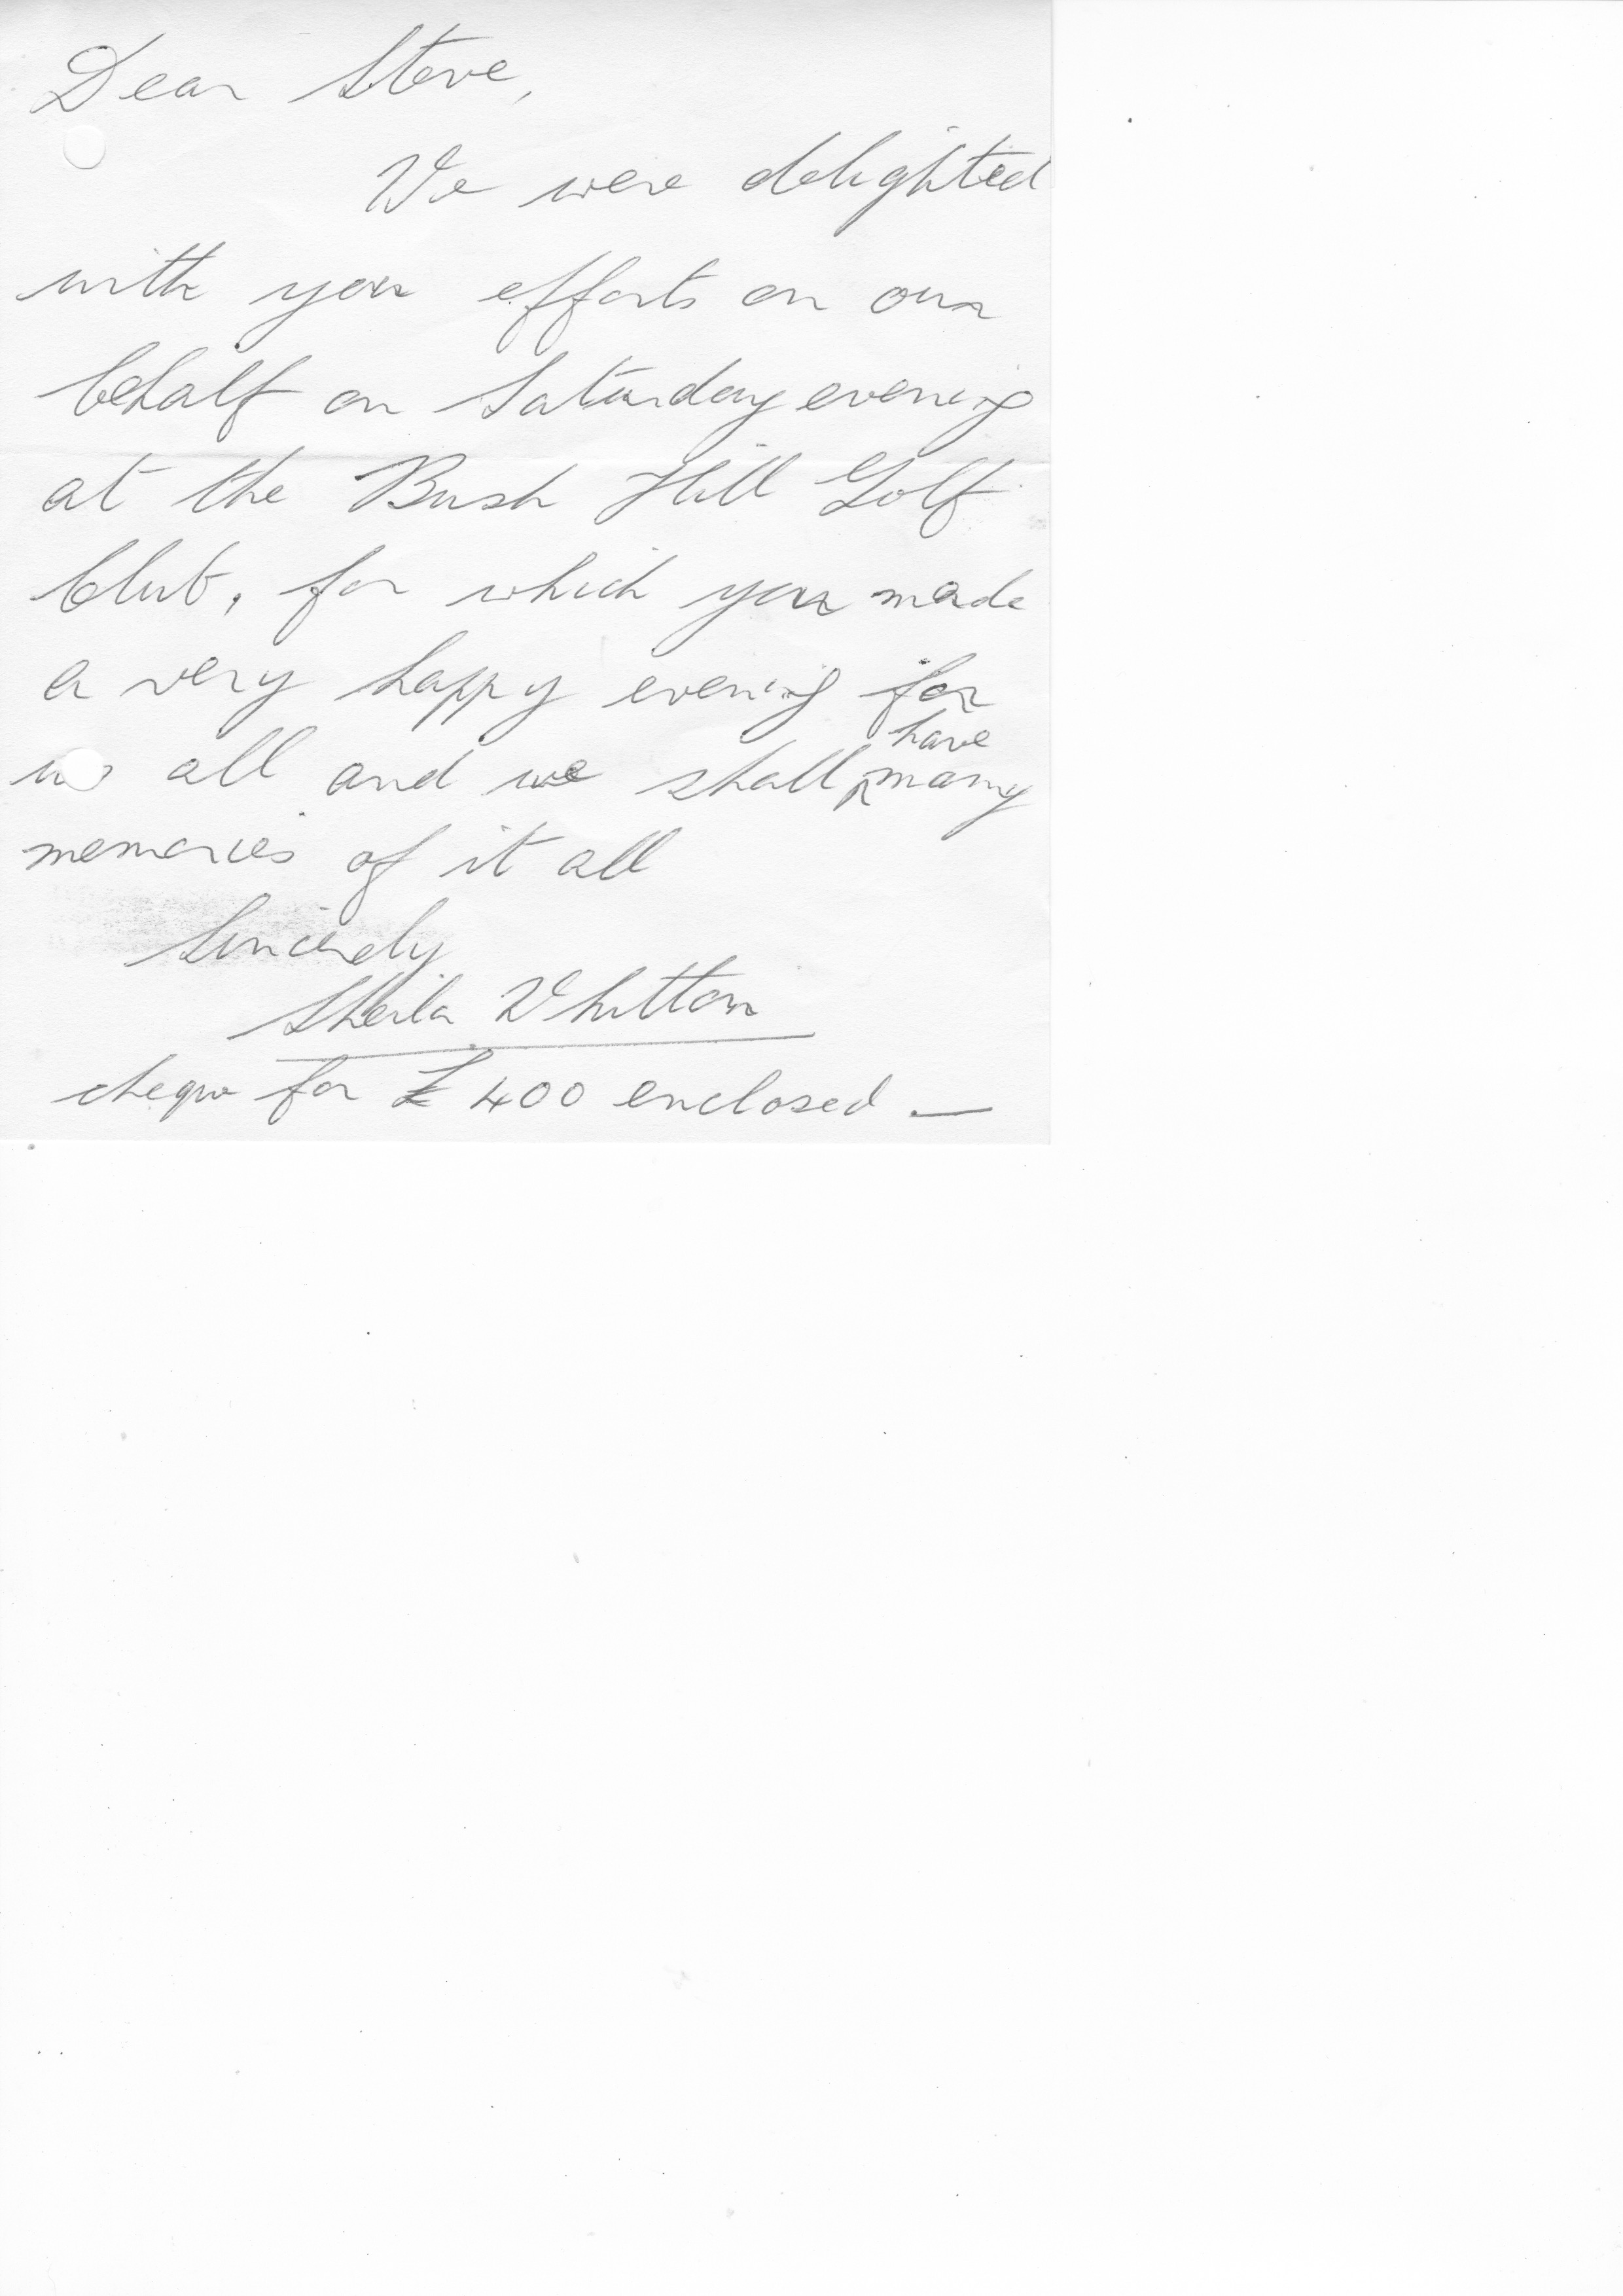 Dear Steve,
We were delighted
with your efforts on our
behalf on Saturday evening
at the Bush Hill Golf
Club, for which you made
a very happy evening for
us all and we shall have many
memories of it all
Sincerely
Sheila Whitton
cheque for £400 enclosed —